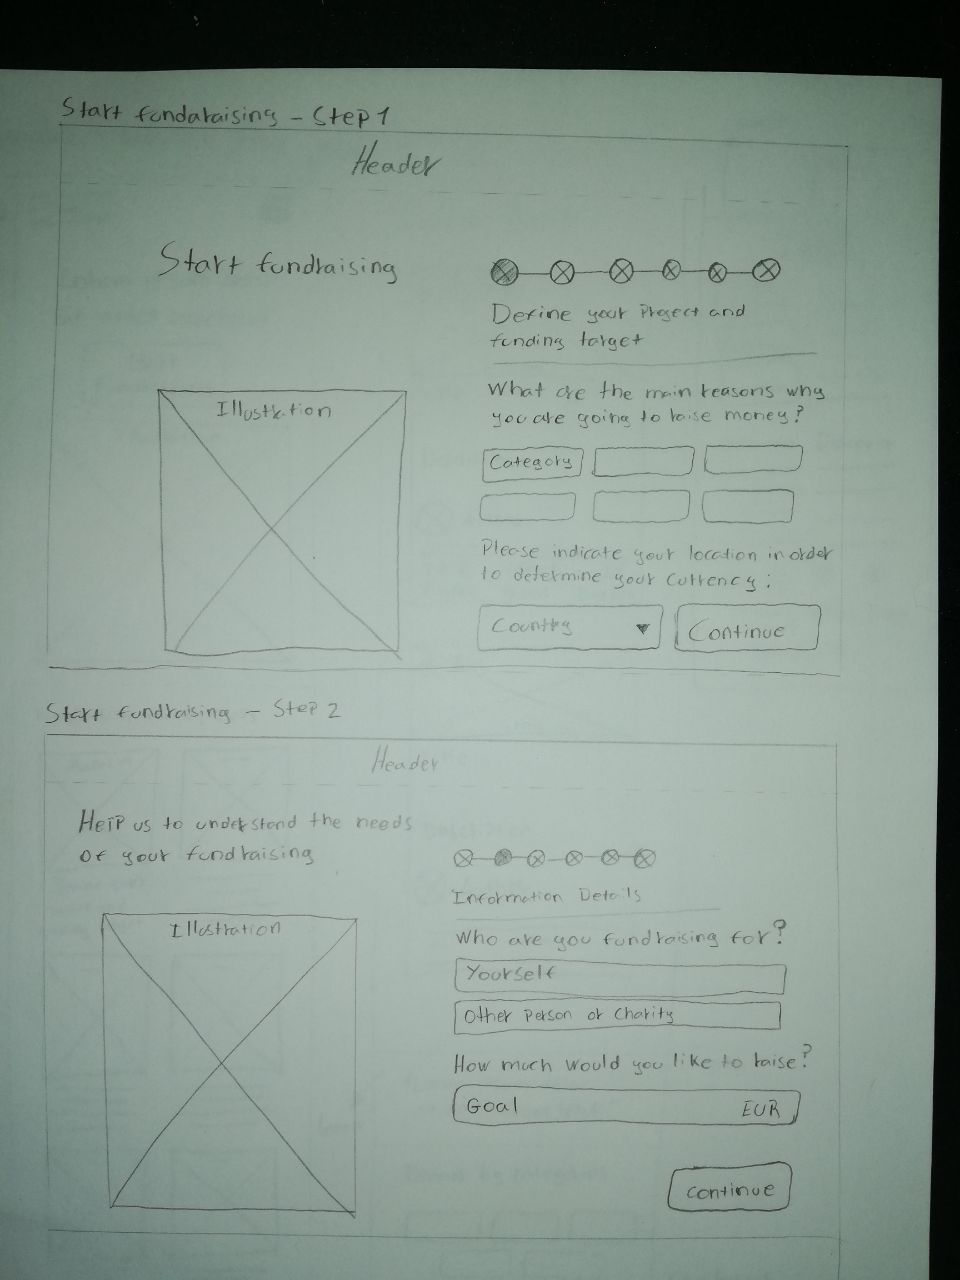 Start fundaraising - Step 1
Header
Start fundraising
Define your Project and
funding target
Illustration
What are the main reasons why
you are going to raise money?
Category
Please indicate your location in order
to determine your currency:
Country
Continue
Start fundraising - Step 2
Header
Help us to understand the needs
of your fundraising
Information Details
Illustration
Who are you fundraising for?
Yourself
Other Person or Charity
How much would you like to raise?
Goal EUR
Continue